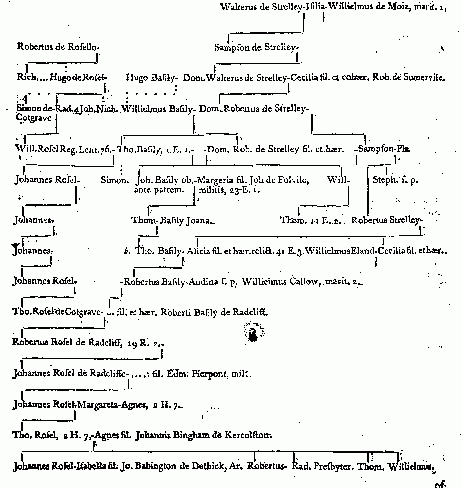 Walterus de Strelley-Isilia-Willielmus de Moiz, marit. 2,
Robertus de Rosello. Sampson de Strelley-
Rich.... Hugo de Rosel- Hugo Basily- Dom. Walterus de Strelley-Cecilia fil. et cohær. Rob. de Somervile.
Simon de- Rad. 4 Joh. Nich. Willielmus Basily- Dom. Robertus de Strelley-
Cotgrave
Will. Rosel Reg. Lent. 76.- Tho. Basily, 1 E. 1.- -Dom. Rob. de Strelley fil. et hær. -Sampson-
Johannes Rosel- Simon. Joh. Basily ob.-Margeria fil. Joh de Will- Steph. s. p.
ante patrem. militis, 23 E. 1.
Johannes- Thom- Basily Joana- Thom. 11 E. 2.- Robertus Strelley-
Johannes- Tho. Basily- Alicia fil. et hær. relict. 41 E. 3. Willielmus Eland-Cecilia fil. et hær.
Johannes Rosel- -Robertus Basily-Audina s. p. Willielmus Callow, marit. 2.
Tho. Rosel de Cotgrave-... fil. et hær. Roberti Basily de Radcliff.
Robertus Rosel de Radcliff, 19 R. 2.-
Johannes Rosel de Radcliffe-....: fil. Edm: Pierpont, mil.
Johannes Rosel-Margareta-Agnes, 2 H. 7.
Tho. Rosel, 2 H. 7.-Agnes fil. Johannis Bingham de
Johannes Rosel-Isabella fil. Jo. Babington de Dethick, Ar. Robertus- Rad. Presbyter. Thom. Willielmus,
of